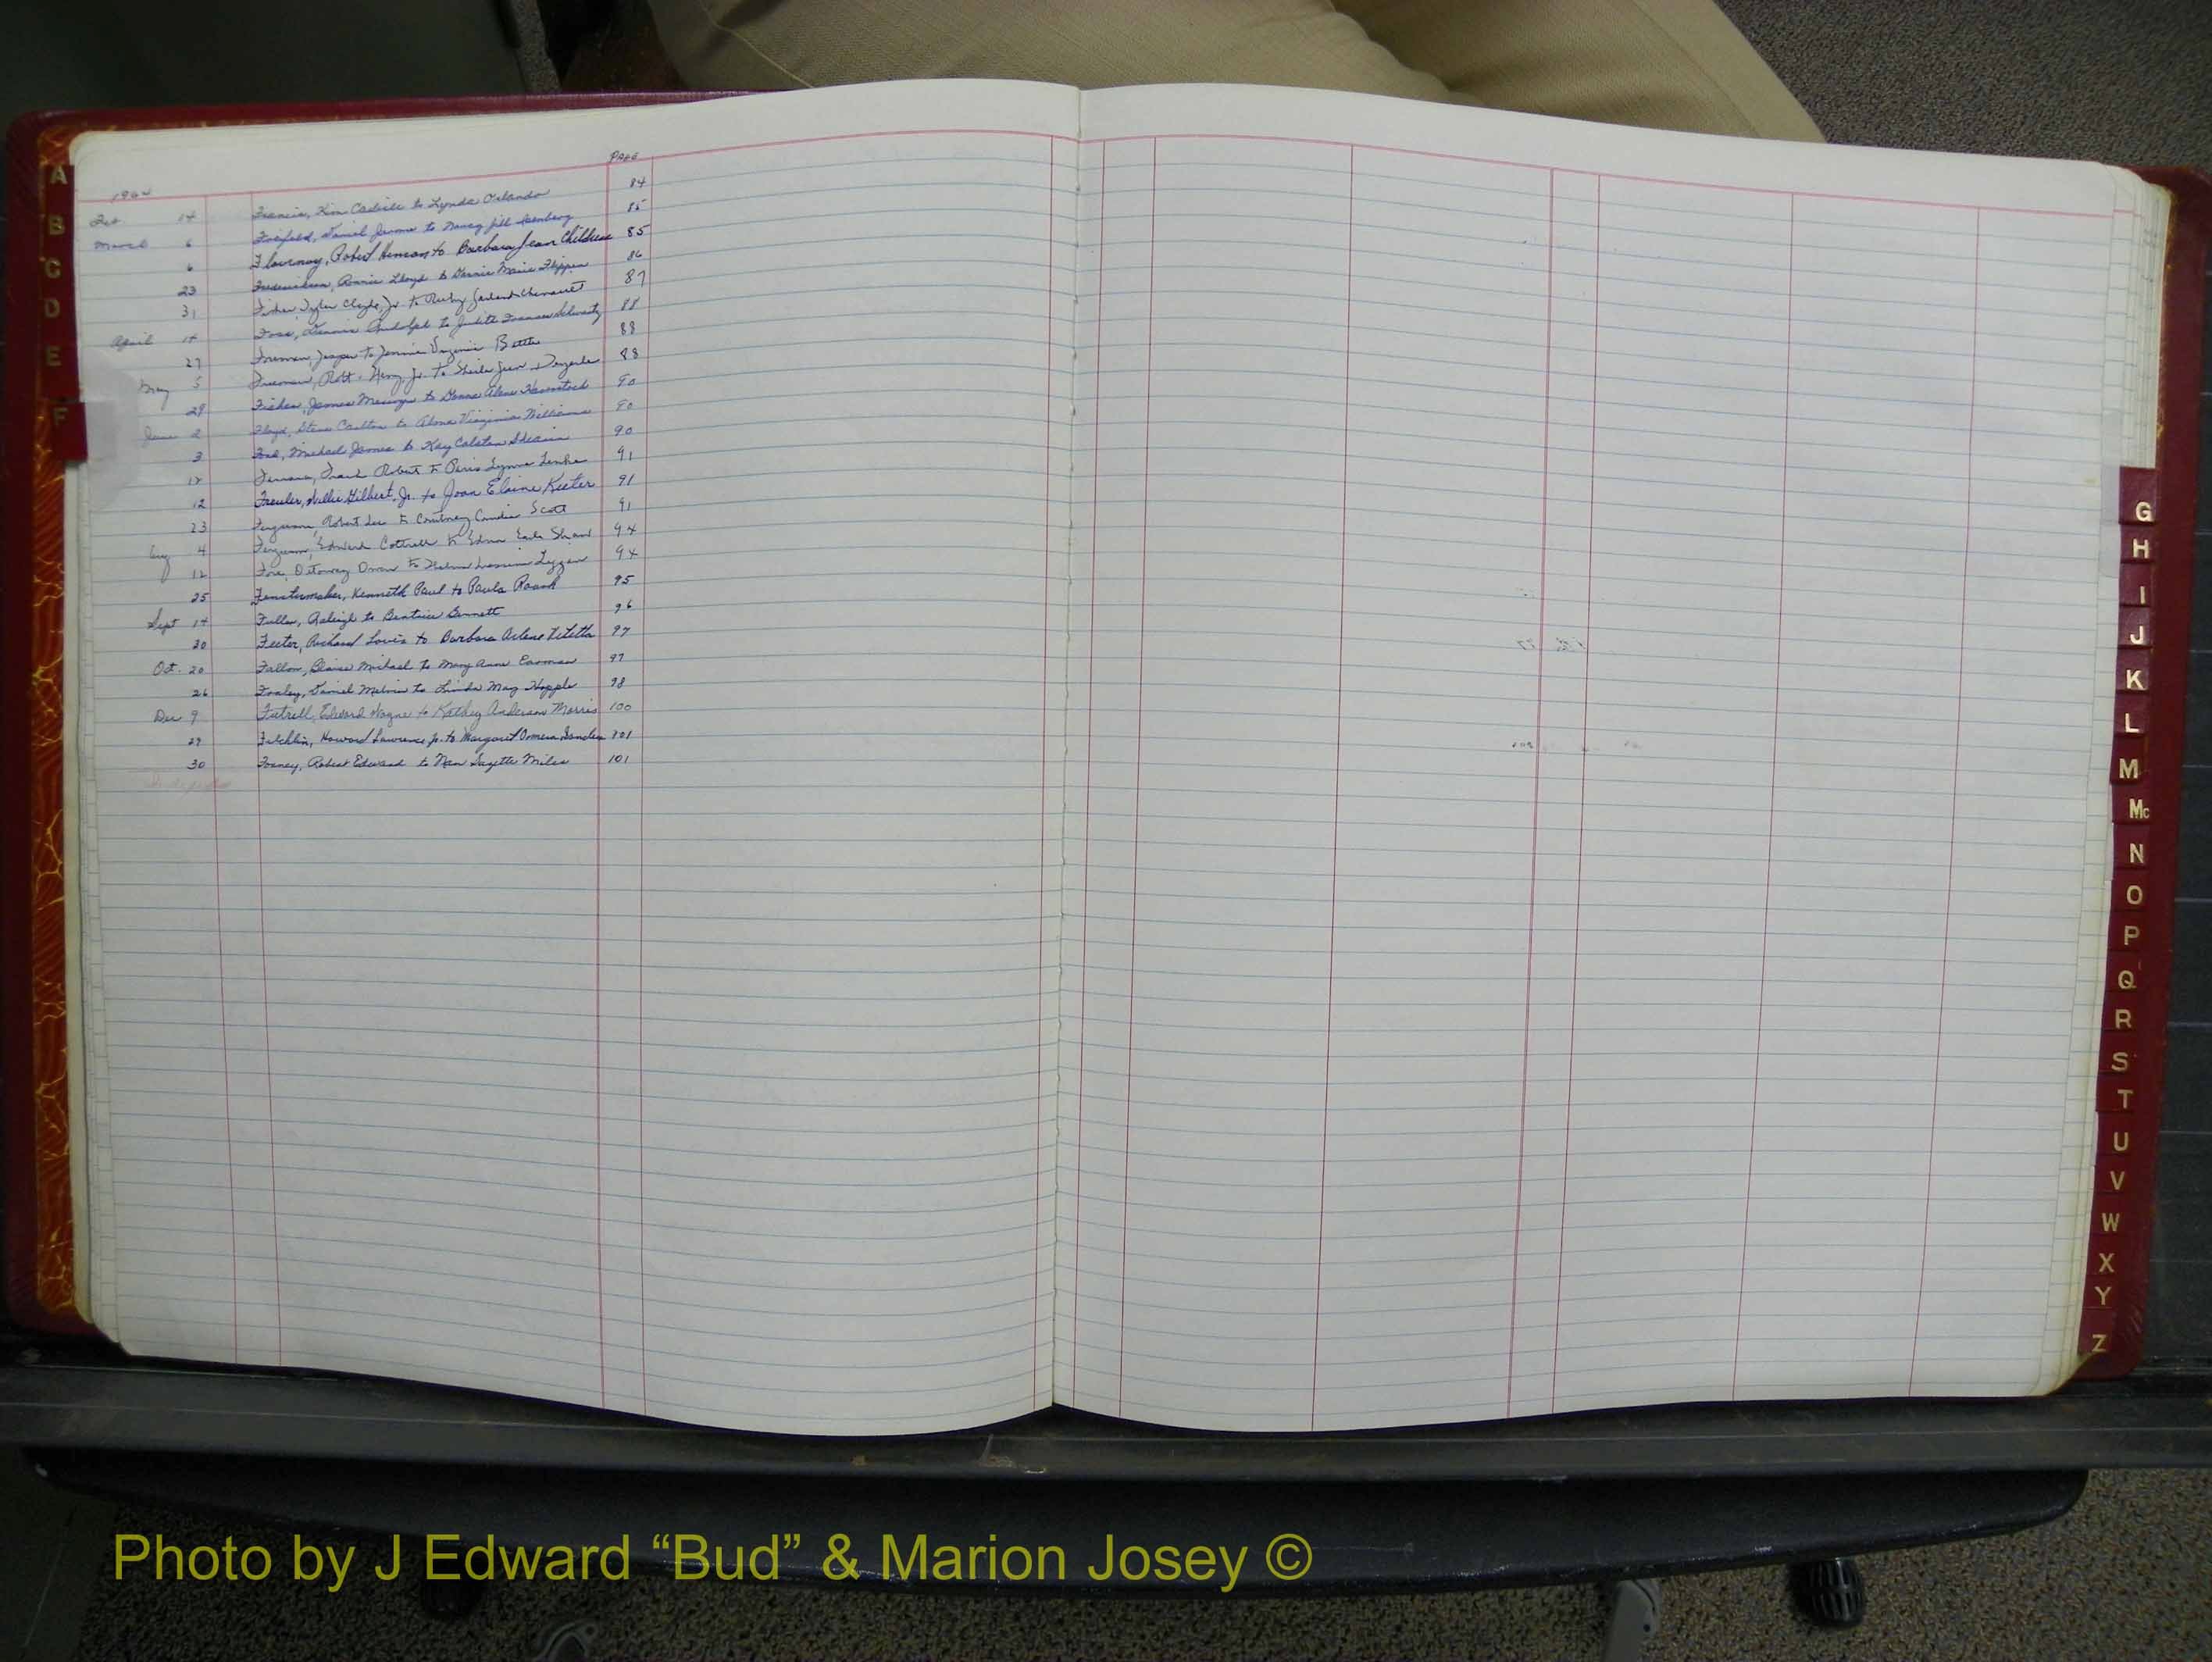 PAGE
1964
Feb 14 Francis, Kim Carlisle to Lynda Orlando 84
March 6 Freifeld, Daniel Jerome to Nancy Jill 85
6 Flournoy, Robert Henson to Barbara Jean Childress 85
23 Frederickson, Ronnie Lloyd to Marie Flippen 86
31 Fisher, Tyler Clyde, Jr. to Ruby Garland Chenault 87
April 14 Foss, Dennis Randolph to Judith Frances Schwartz 88
27 Foreman, Jasper to Jennie Virginia Battle 88
May 5 Freeman, Robt. Henry, Jr. to Sheila Jean 88
29 Fisher, James to Donna Alene 90
June 2 Floyd, Steve Carlton to Virginia Williams 90
3 Michael James to Kay 90
12 Frank Robert to Lynne 91
12 Freuler, Willie Gilbert, Jr. to Joan Elaine Keeter 91
23 Ferguson, Robert Lee to Courtney Scott 91
Aug 4 Ferguson, Edward Cottrell to Edna Earle Shaw 94
12 Fore, Ottoway to Thelma 94
25 Fenstermaker, Kenneth Paul to Paula 95
Sept 14 Fuller, Raleigh to Beatrice Bennett 96
30 Feeter, Richard Louis to Barbara Arlene 97
Oct. 20 Fallon, Blaise Michael to Mary Anne 97
26 Fraley, Daniel Melvin to Linda May Hopple 98
Dec 9 Futrell, Edward Wayne to Kathey Anderson Morris 100
29 Howard Lawrence Jr. to Margaret 101
30 Forney, Robert Edward to Nan Miles 101
A
B
C
D
E
F
G
H
I
J
K
L
M
Mc
N
O
P
Q
R
S
T
U
V
W
X
Y
Z
Photo by J Edward “Bud” & Marion Josey ©